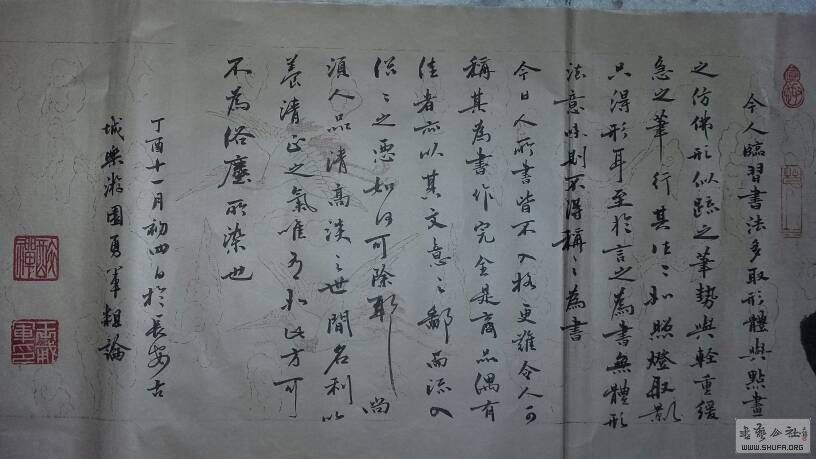 今人臨習書法多取形體與點畫
之仿佛形似之筆勢與輕重緩
急之筆行其如照燈取影
只得形耳至於言之為書無體形
法意味則不得稱之為書
今日人所書皆不入格更難令人可
稱其為書作完全是商品偶有
佳者亦以其文意之鄙而流入
俗之惡如何可除耶尚
須人品清高淡之世間名利以
養清正之氣唯有如此方可
不為俗塵所染也
丁酉十一月初四日於長安古
城樂游園勇軍粗論
WWW.SHUFA.ORG